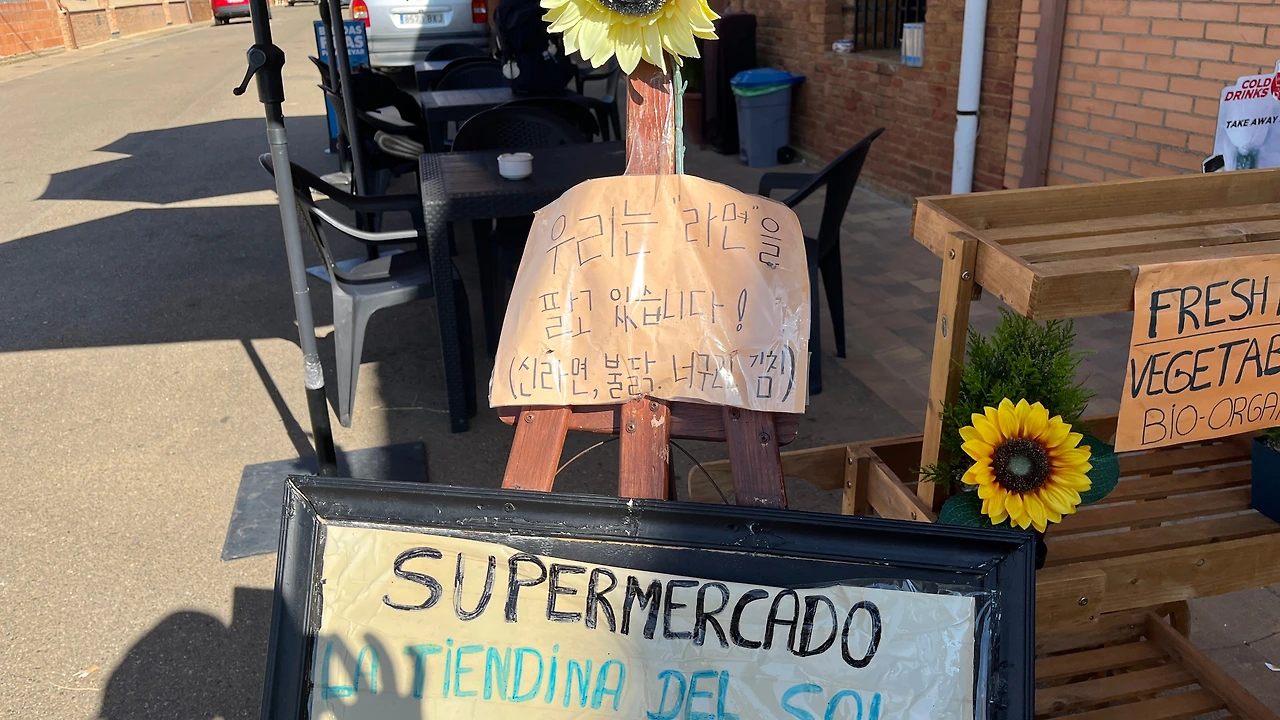 우리는 "라면"을
팔고 있습니다!
(신라면, 불닭. 너구리 김치)
SUPERMERCADO
LA TIENDINA DEL SOL
FRESH
VEGETAB
BIO-ORGA
COLD
DRINKS
TAKE AWAY